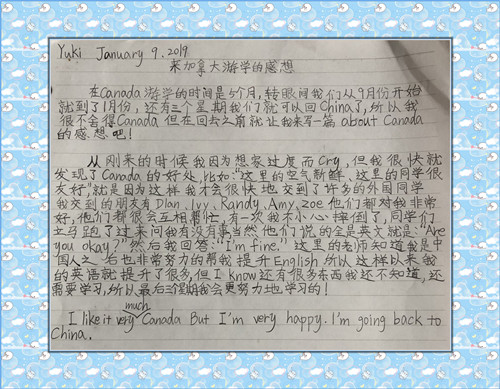 Yuki January 9.2019
来加拿大游学的感想
在Canada游学的时间是5个月,转眼间我们从9月份开始
就到了1月份,还有三个星期我们就可以回China了,所以我
很不舍得Canada但在回去之前就让我来写一篇about Canada
的感想吧!
从刚来的时候我因为想家过度而Cry,但我很快就
发现了Canada的好处,比如:“这里的空气新鲜,这里的同学很
友好”就是因为这样我才会很快地交到了许多的外国同学
我交到的朋友有Dlan.Ivy.Randy.Amy.zoe他们都对我非常
好,他们都很会互相帮忙,有一次我不小心摔倒了,同学们
立马跑了过来问我有没有事当然他们说的全是英文就是:“Are
you okay?”然后我回答:“I'm fine.”这里的老师知道我是中
国人之后也非常努力的帮我提升English所以这样以来我
的英语就提升了很多,但I know还有很多东西我还不知道,还
需要学习,所以最后三个星期我会更努力地学习的!
I like it very much Canada But I'm very happy. I'm going back to
China.